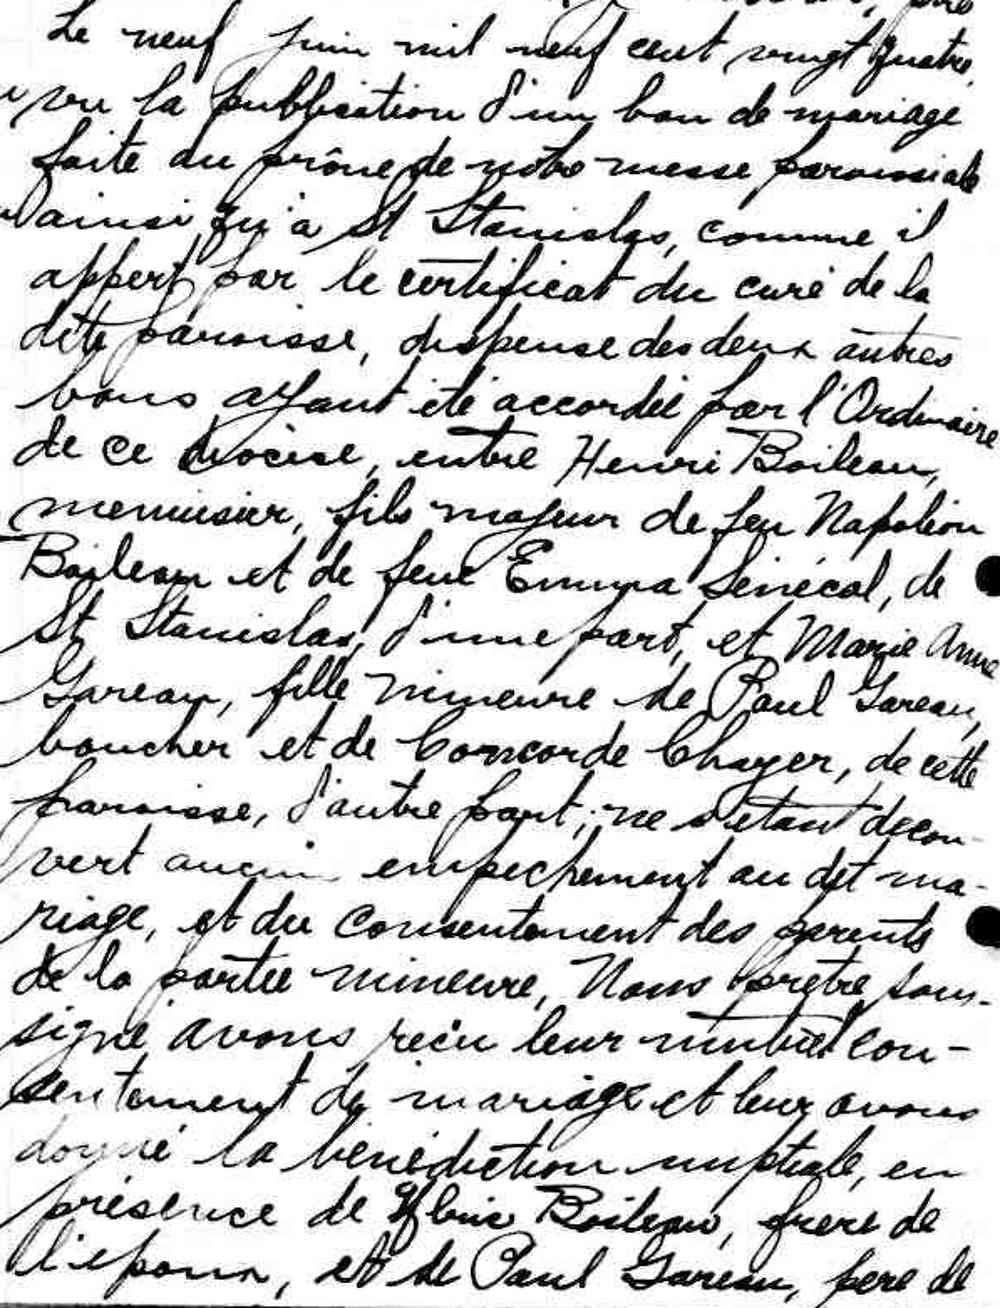 Le neuf juin mil neuf cent vingt quatre,
vu la publication d'un ban de mariage
faite au prône de notre messe paroissiale
ainsi qu'à St Stanislas, comme il
appert par le certificat du curé de la
dite paroisse, dispense des deux autres
bans ayant été accordée par l'Ordinaire
de ce diocèse, entre Henri Boileau,
menuisier, fils majeur de feu Napoléon
Boileau et de feue Emma Sénécal, de
St Stanislas, d'une part, et Marie Anne
Gareau, fille mineure de Paul Gareau,
boucher et de Concorde Chayer, de cette
paroisse, d'autre part; ne s'étant décou-
vert aucun empechement au dit ma-
riage, et du consentement des parents
de la partie mineure, Nous prêtre sous-
signé avons reçu leur mutuel con-
sentement de mariage et leur avons
donné la bénédiction nuptiale, en
présence de Boileau, frère de
l'époux, et de Paul Gareau, père de